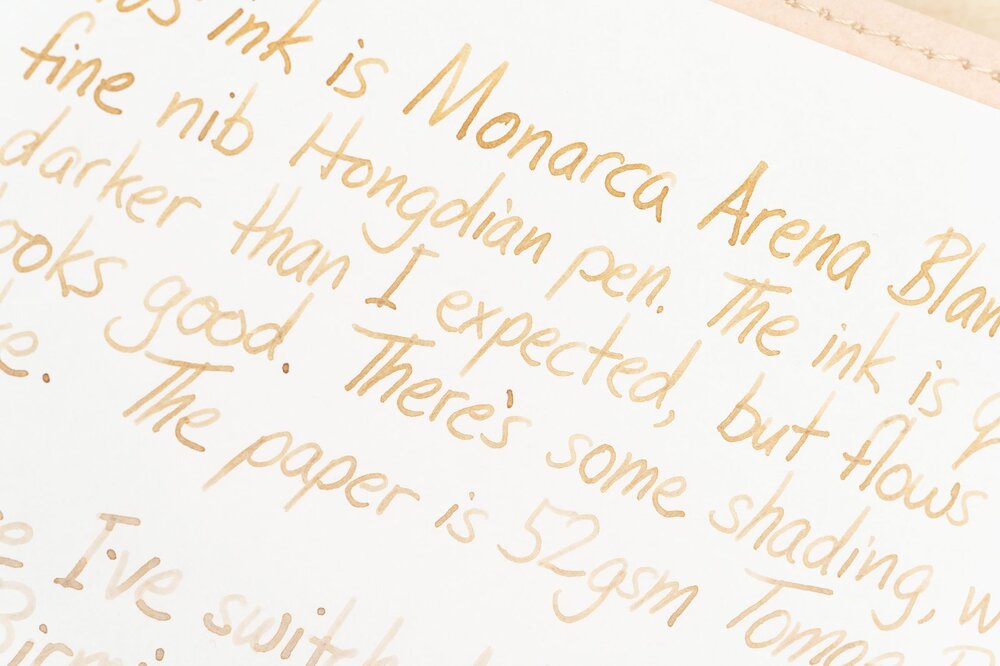 ink is Monarca Arena
fine nib Hongdian pen. The ink is
darker than I expected, but flows
good. There's some shading,
The paper is 52gsm
I've